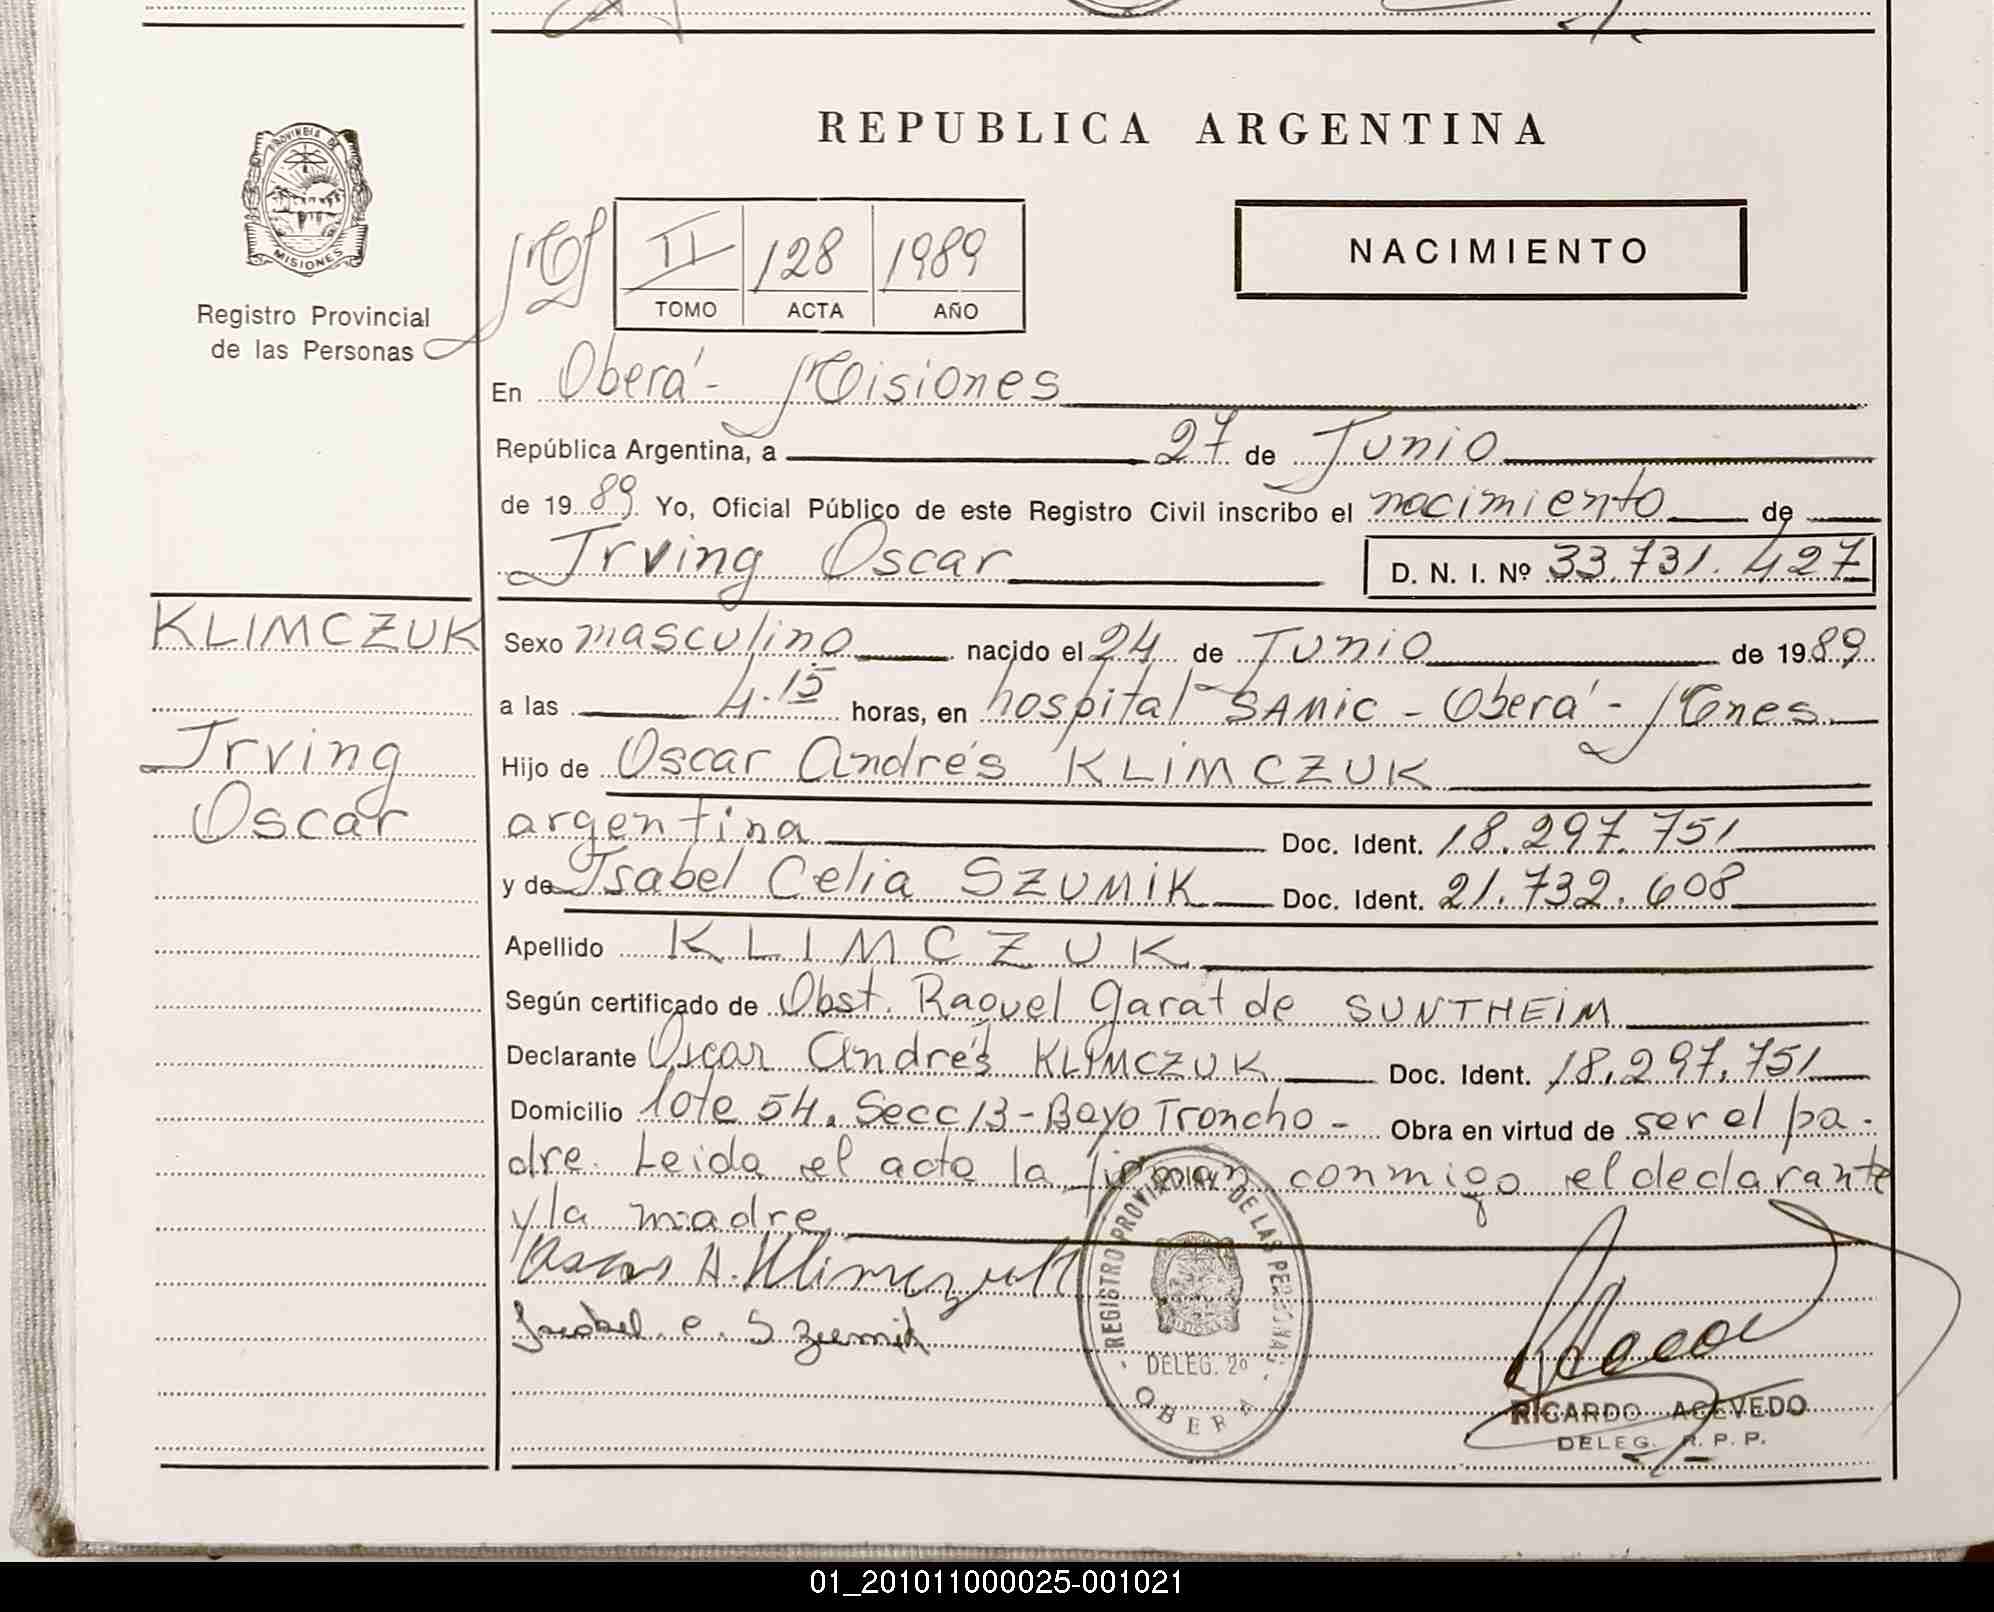 REPUBLICA ARGENTINA
PROVINCIA DE
MISIONES
Registro Provincial
de las Personas
II 128 1989
TOMO ACTA AÑO
NACIMIENTO
En Oberá - Misiones
República Argentina, a 27 de Junio
de 1989 Yo, Oficial Público de este Registro Civil inscribo el nacimiento de
Irving Oscar D. N. I. Nº 33.731.427
KLIMCZUK
Irving
Oscar
Sexo masculino nacido el 24 de Junio de 1989
a las 4.15 horas, en hospital SAMIC - Oberá - Mnes
Hijo de Oscar Andrés KLIMCZUK
argentina Doc. Ident. 18.297.751
y de Isabel Celia SZUMIK Doc. Ident. 21.732.608
Apellido KLIMCZUK
Según certificado de Obst. Raquel Garat de SUNTHEIM
Declarante Oscar Andrés KLIMCZUK Doc. Ident. 18.297.751
Domicilio lote 54. Secc 13 - Bayo Troncho - Obra en virtud de ser el pa-
dre. Leida el acta la firman conmigo el declarante
y la madre
Oscar A. Klimczuk
Isabel. C. Szumik
REGISTRO PROVINCIAL DE LAS PERSONAS
DELEG. 2º
OBERA
RICARDO ACEVEDO
DELEG. R. P. P.
01_201011000025-001021